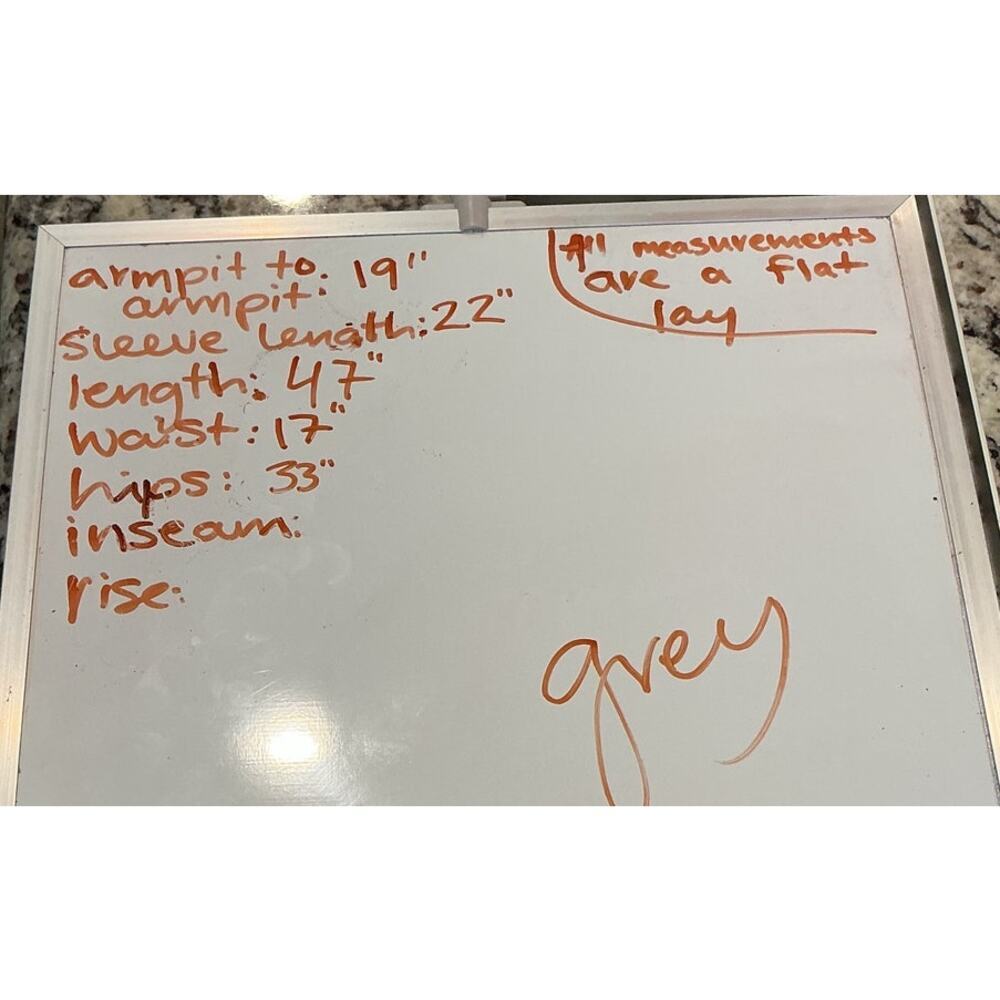 armpit to
armpit: 19"
sleeve length: 22"
length: 47"
waist: 17"
hips: 33"
inseam:
rise:
All measurements
are a flat
lay
grey